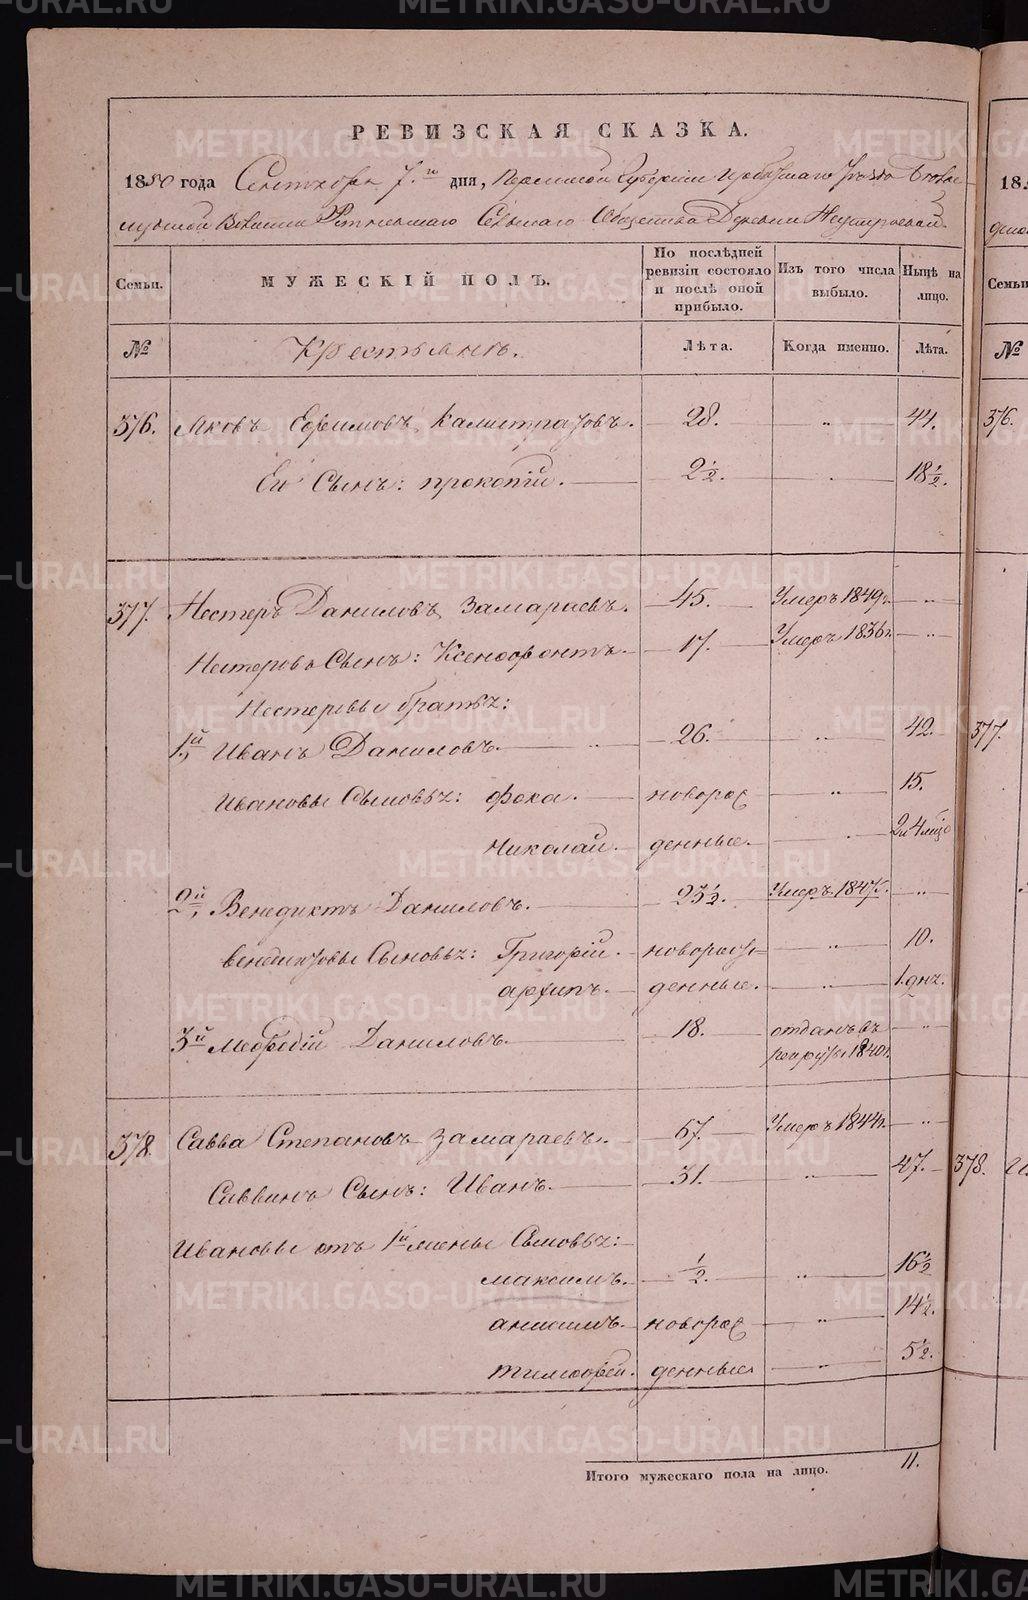 METRIKI.GASO-URAL.RU
РЕВИЗСКАЯ СКАЗКА.
1850 года Сентября 7го дня, Пермской Губерніи Ирбитскаго Уѣзда
Волости Сельскаго Общества Деревни
Семьи. МУЖЕСКІЙ ПОЛЪ. По послѣдней ревизіи состояло и послѣ оной прибыло. Изъ того числа выбыло. Нынѣ на лицо.
№ Крестьянъ. Лѣта. Когда именно. Лѣта.
376. Яковъ Ефимовъ Калистратовъ. 28. „ 44. 376.
Ег Сынъ: прокопій. 2½. 18½.
377. Нестеръ Даниловъ Замараевъ. 45. Умеръ 1849г. „
Нестеровъ Сынъ: Ксенофонтъ. 17. Умеръ 1836г. „
Нестеровы братья:
1й Иванъ Даниловъ. 26. „ 42. 377.
Ивановы Сыновья: фока. новорож „ 15.
Николай. денные. 2л 4 мѣц
2й Венедиктъ Даниловъ. 23½. Умеръ 1847г. „
венедиктовы Сыновья: Григорій. новорож „ 10.
архипъ. денные. „ 1. днг.
3й Мефодій Даниловъ. 18. отданъ въ „
рекруты 1840г.
378. Савва Степановъ Замараевъ. 67. Умеръ 1844г. „
Саввинъ Сынъ: Иванъ. 31. „ 47. 378.
Ивановы отъ 1й жены Сыновья:
максимъ. ½. „ 16½
анисимъ. новорож „ 14½.
тимофей. денные. „ 5½.
Итого мужескаго пола на лицо. 11.